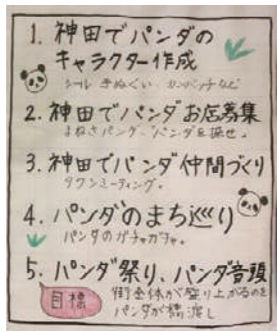 1. 神田でパンダの
キャラクター作成
シール 手ぬぐい カンバッチなど
2. 神田でパンダお店募集
まねきパンダ、パンダを探せ。
3. 神田でパンダ仲間づくり
タウンミーティング。
4. パンダのまち巡り
パンダのガチャガチャ。
5. パンダ祭り、パンダ音頭
目標
街全体が盛り上がるのを
パンダが橋渡し